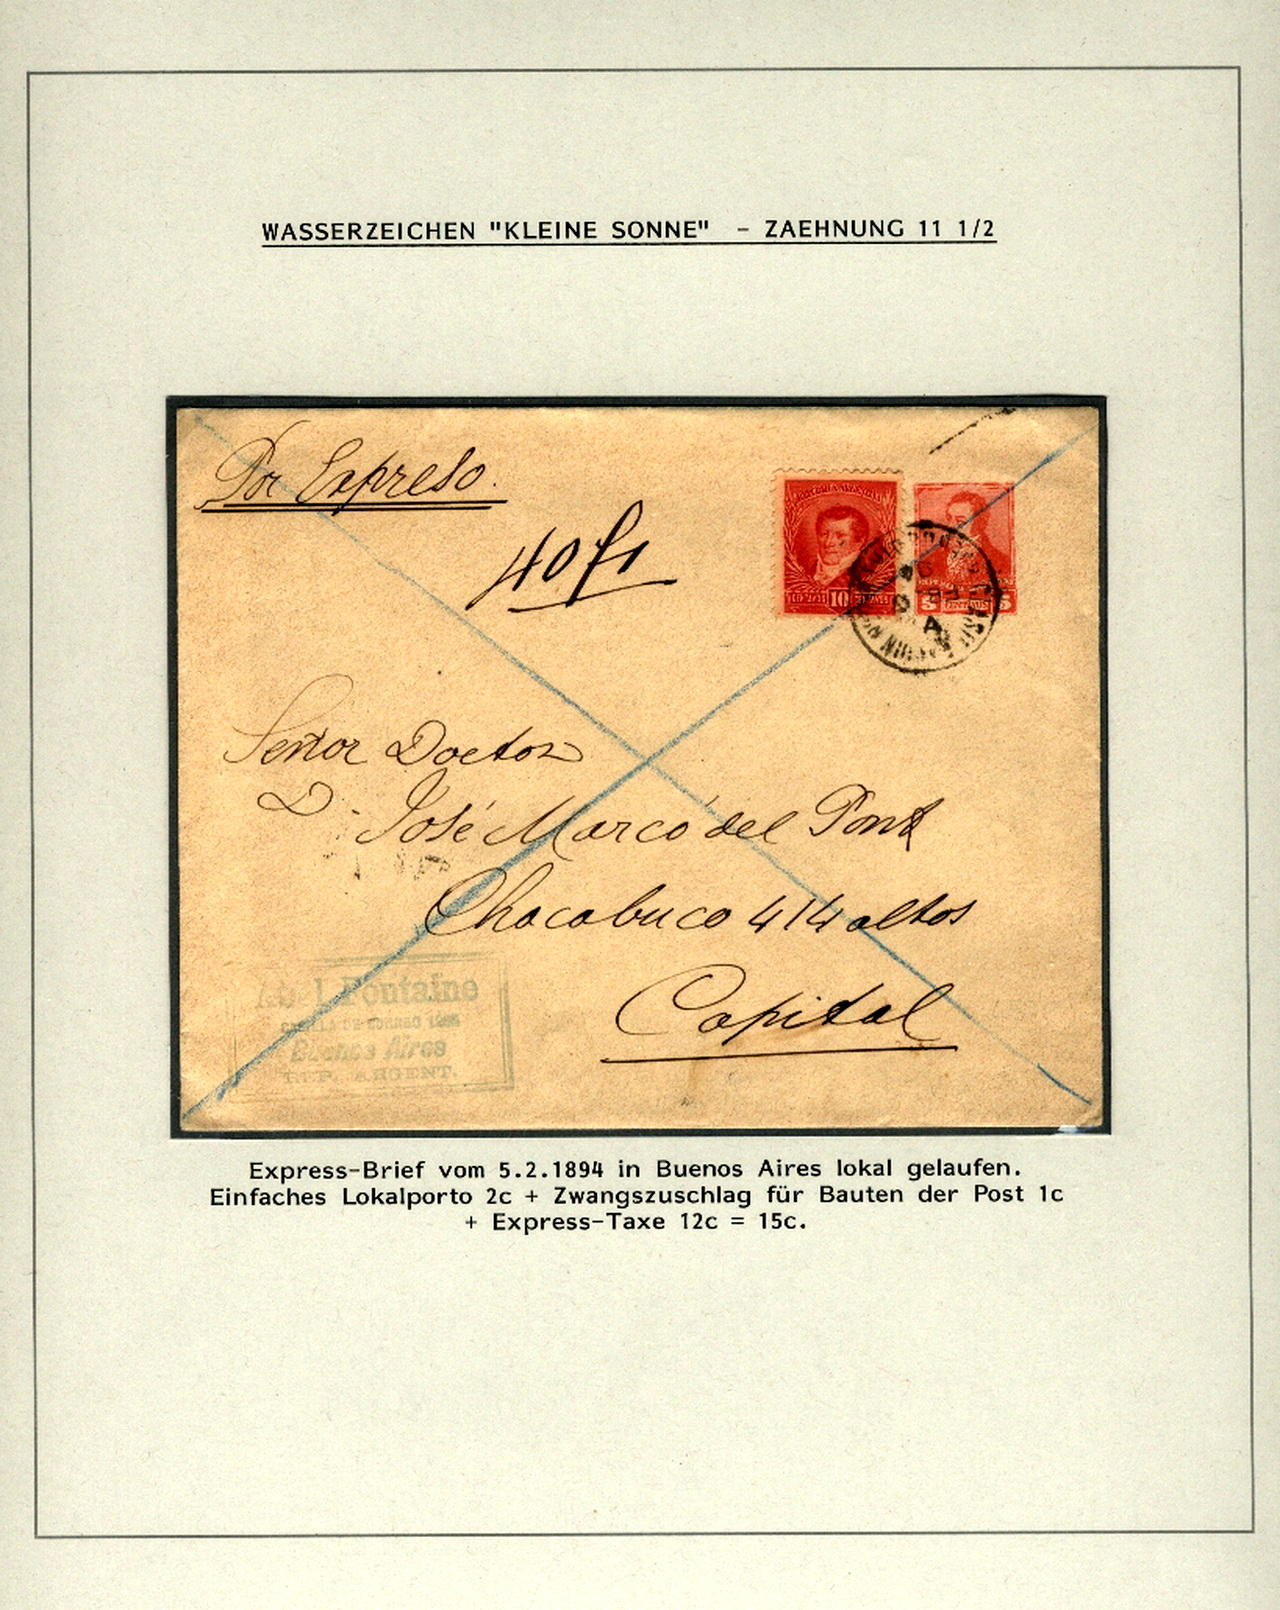 WASSERZEICHEN "KLEINE SONNE" - ZAEHNUNG 11 1/2
Por Expreso.
40 
REPUBLICA ARGENTINA
10
5 CENTAVOS 5
A
Señor Doctor
D. José Marcó del Pont
Chacabuco 414 altos
Capital
Fontaine
CASILLA DE CORREO
Buenos Aires
REP. ARGENT.
Express-Brief vom 5.2.1894 in Buenos Aires lokal gelaufen.
Einfaches Lokalporto 2c + Zwangszuschlag für Bauten der Post 1c
+ Express-Taxe 12c = 15c.